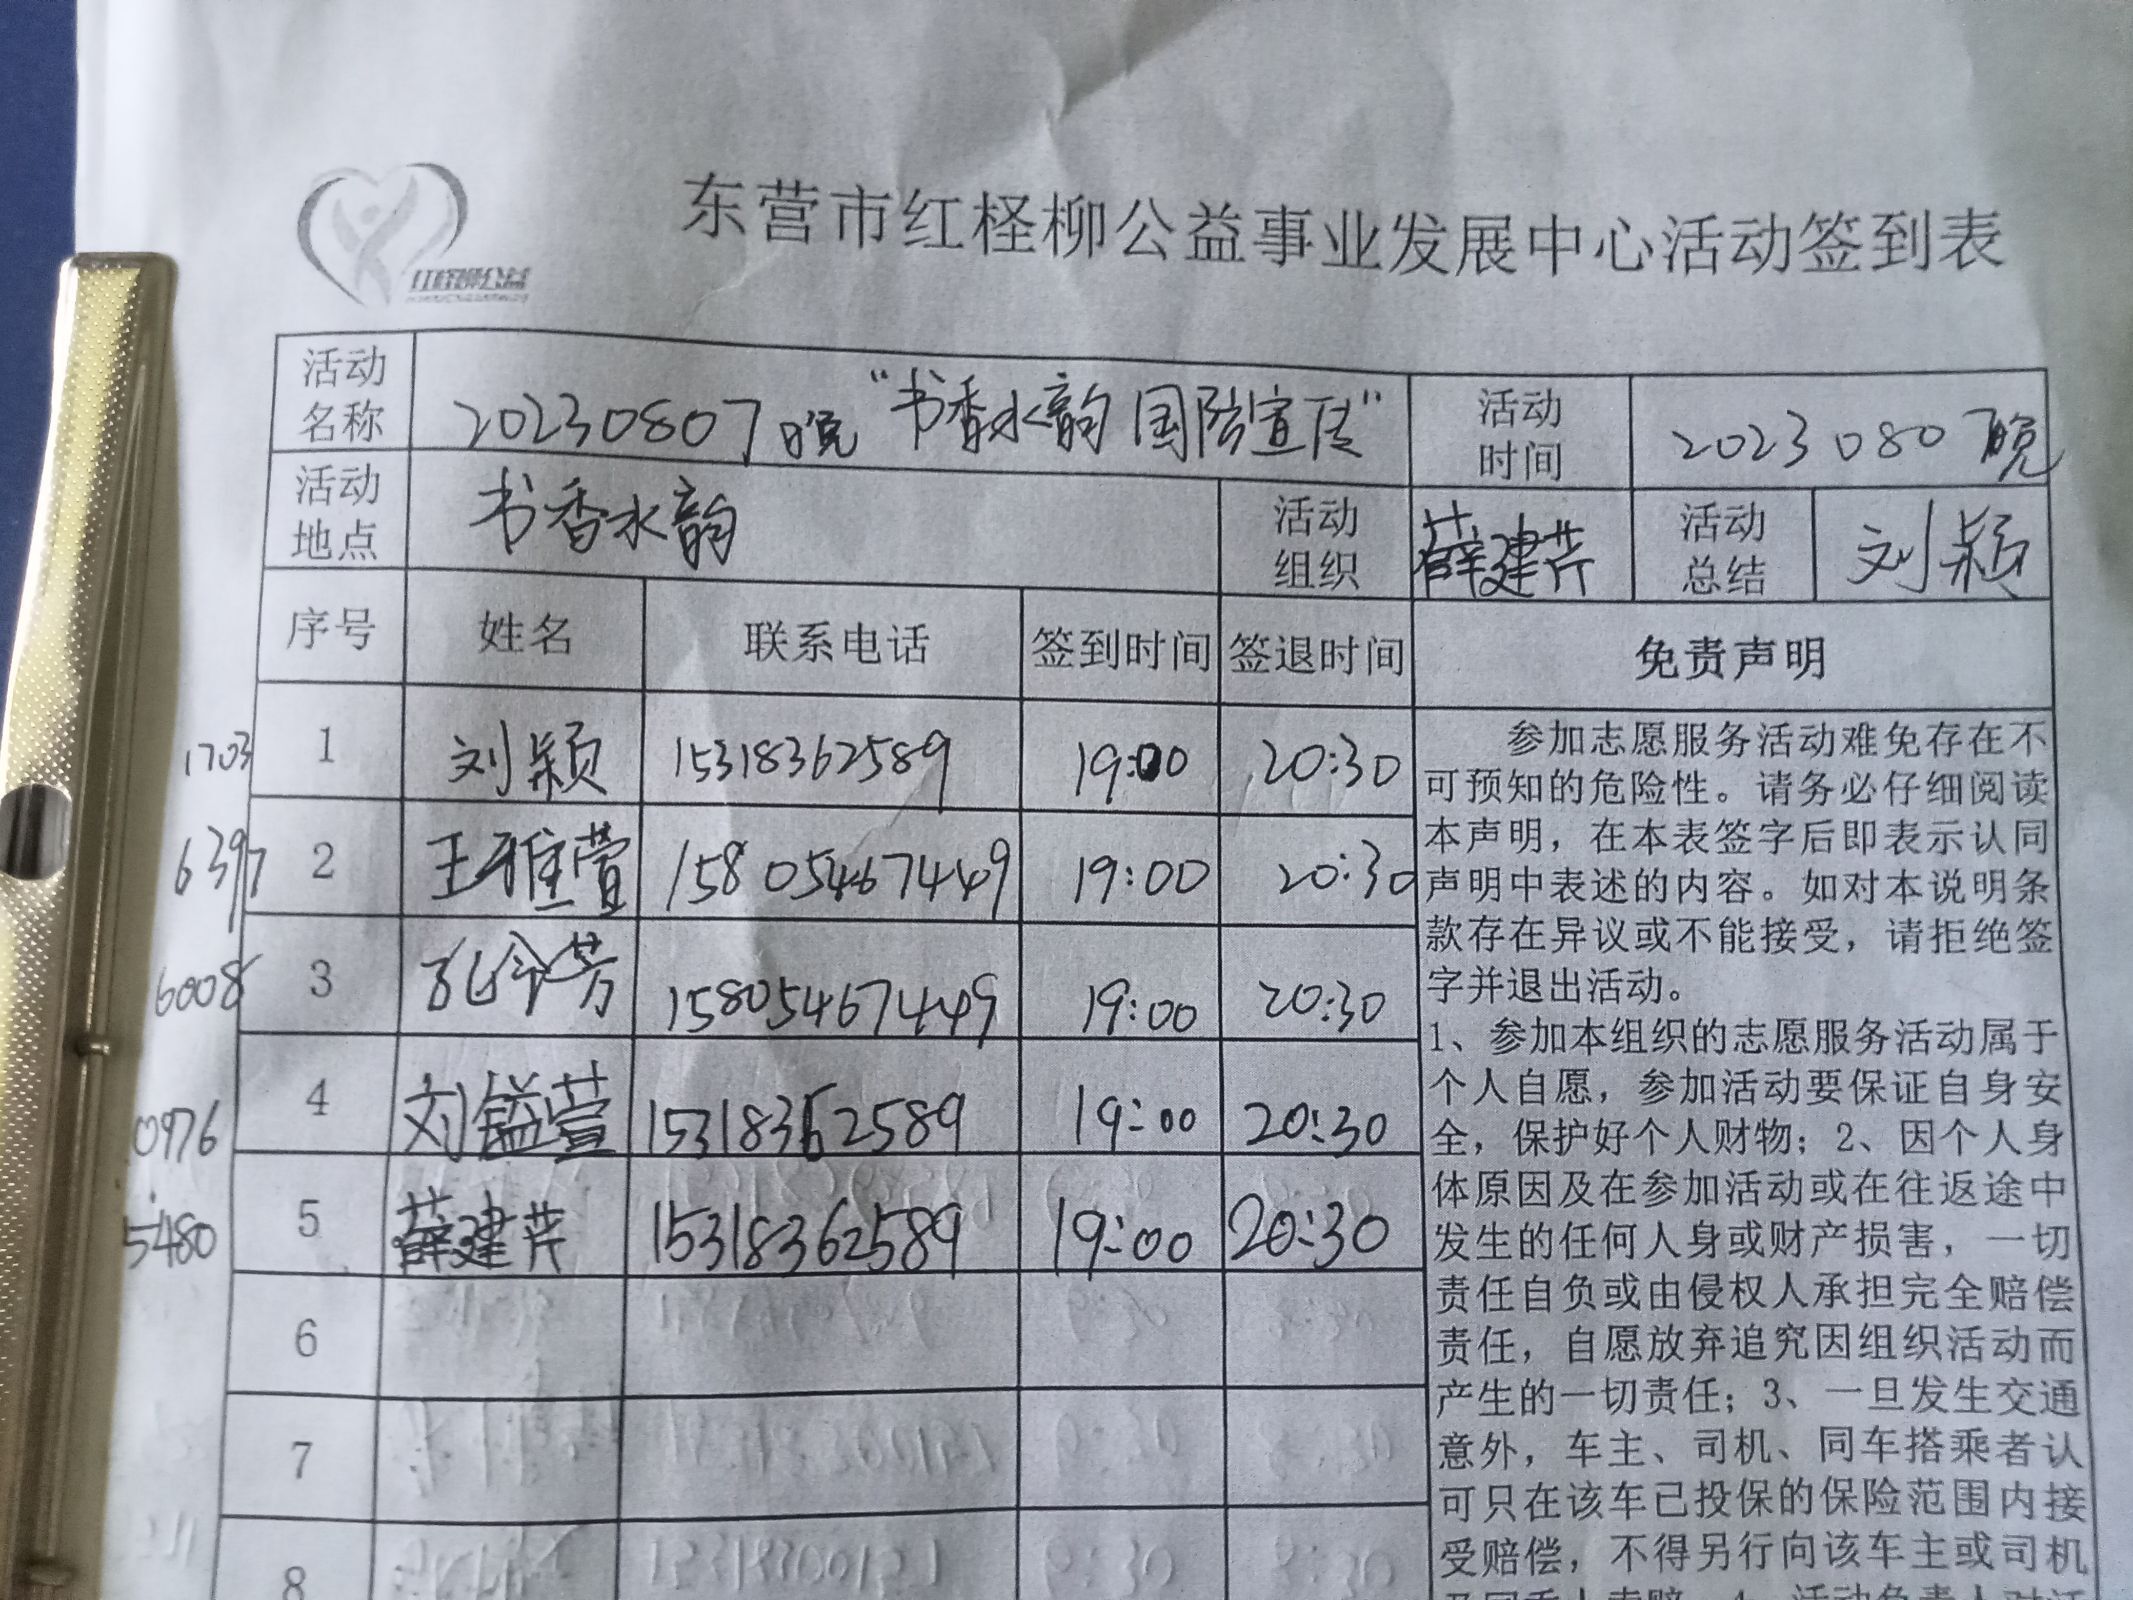 红柽柳公益
东营市红柽柳公益事业发展中心活动签到表
活动名称 20230807晚 “书香水韵 国防宣传” 活动时间 2023 080 晚
活动地点 书香水韵 活动组织 薛建芹 活动总结 刘颖
序号 姓名 联系电话 签到时间 签退时间 免责声明
1703 1 刘颖 15318362589 19:00 20:30
6397 2 王雅萱 15805467449 19:00 20:30
6008 3 孔令芳 15805467449 19:00 20:30
0976 4 刘镒萱 15318362589 19:00 20:30
5480 5 薛建芹 15318362589 19:00 20:30
6
7
8
参加志愿服务活动难免存在不
可预知的危险性。请务必仔细阅读
本声明，在本表签字后即表示认同
声明中表述的内容。如对本说明条
款存在异议或不能接受，请拒绝签
字并退出活动。
1、参加本组织的志愿服务活动属于
个人自愿，参加活动要保证自身安
全，保护好个人财物；2、因个人身
体原因及在参加活动或在往返途中
发生的任何人身或财产损害，一切
责任自负或由侵权人承担完全赔偿
责任，自愿放弃追究因组织活动而
产生的一切责任；3、一旦发生交通
意外，车主、司机、同车搭乘者认
可只在该车已投保的保险范围内接
受赔偿，不得另行向该车主或司机